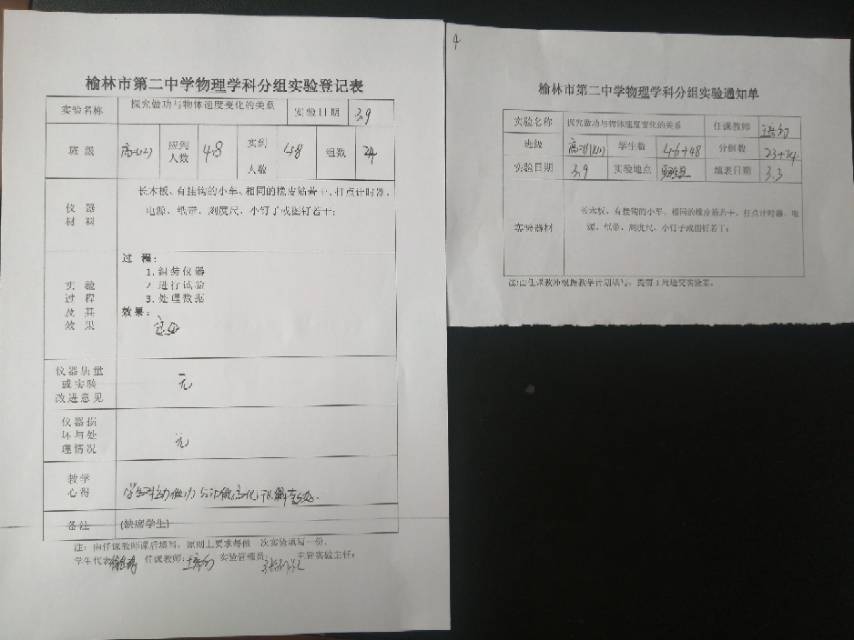 榆林市第二中学物理学科分组实验登记表
实验名称 探究做功与物体速度变化的关系 实验日期 3.9
班 级 应到人数 48 实到人数 48 组数 24
仪 器 材 料 长木板、有挂钩的小车、相同的橡皮筋若干、打点计时器、
电源、纸带、刻度尺、小钉子或图钉若干;
实 验 过 程 及 其 效 果 过 程:
1.组装仪器
2.进行试验
3.处理数据
效果:
仪器质量或实验改进意见 无
仪器损坏与处理情况 无
教学心得
备注 (缺席学生)
注:由任课教师课后填写,原则上要求每做一次实验填写一份。
学生代表: 任课教师: 实验管理员: 主管实验主任:
4
榆林市第二中学物理学科分组实验通知单
实验名称 探究做功与物体速度变化的关系 任课教师
班级 学生数 46+48 分组数 23+24
实验日期 3.9 实验地点 填表日期 3.3
实验器材 长木板、有挂钩的小车、相同的橡皮筋若干、打点计时器、电
源、纸带、刻度尺、小钉子或图钉若干;
注:由任课教师根据教学计划填写,提前1周递交实验室。